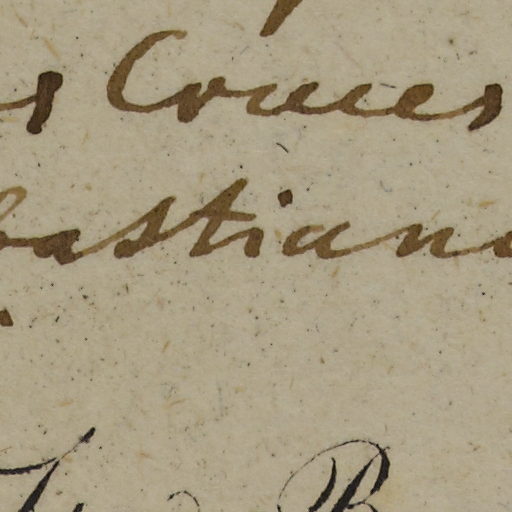 s Cruces
bastian
B